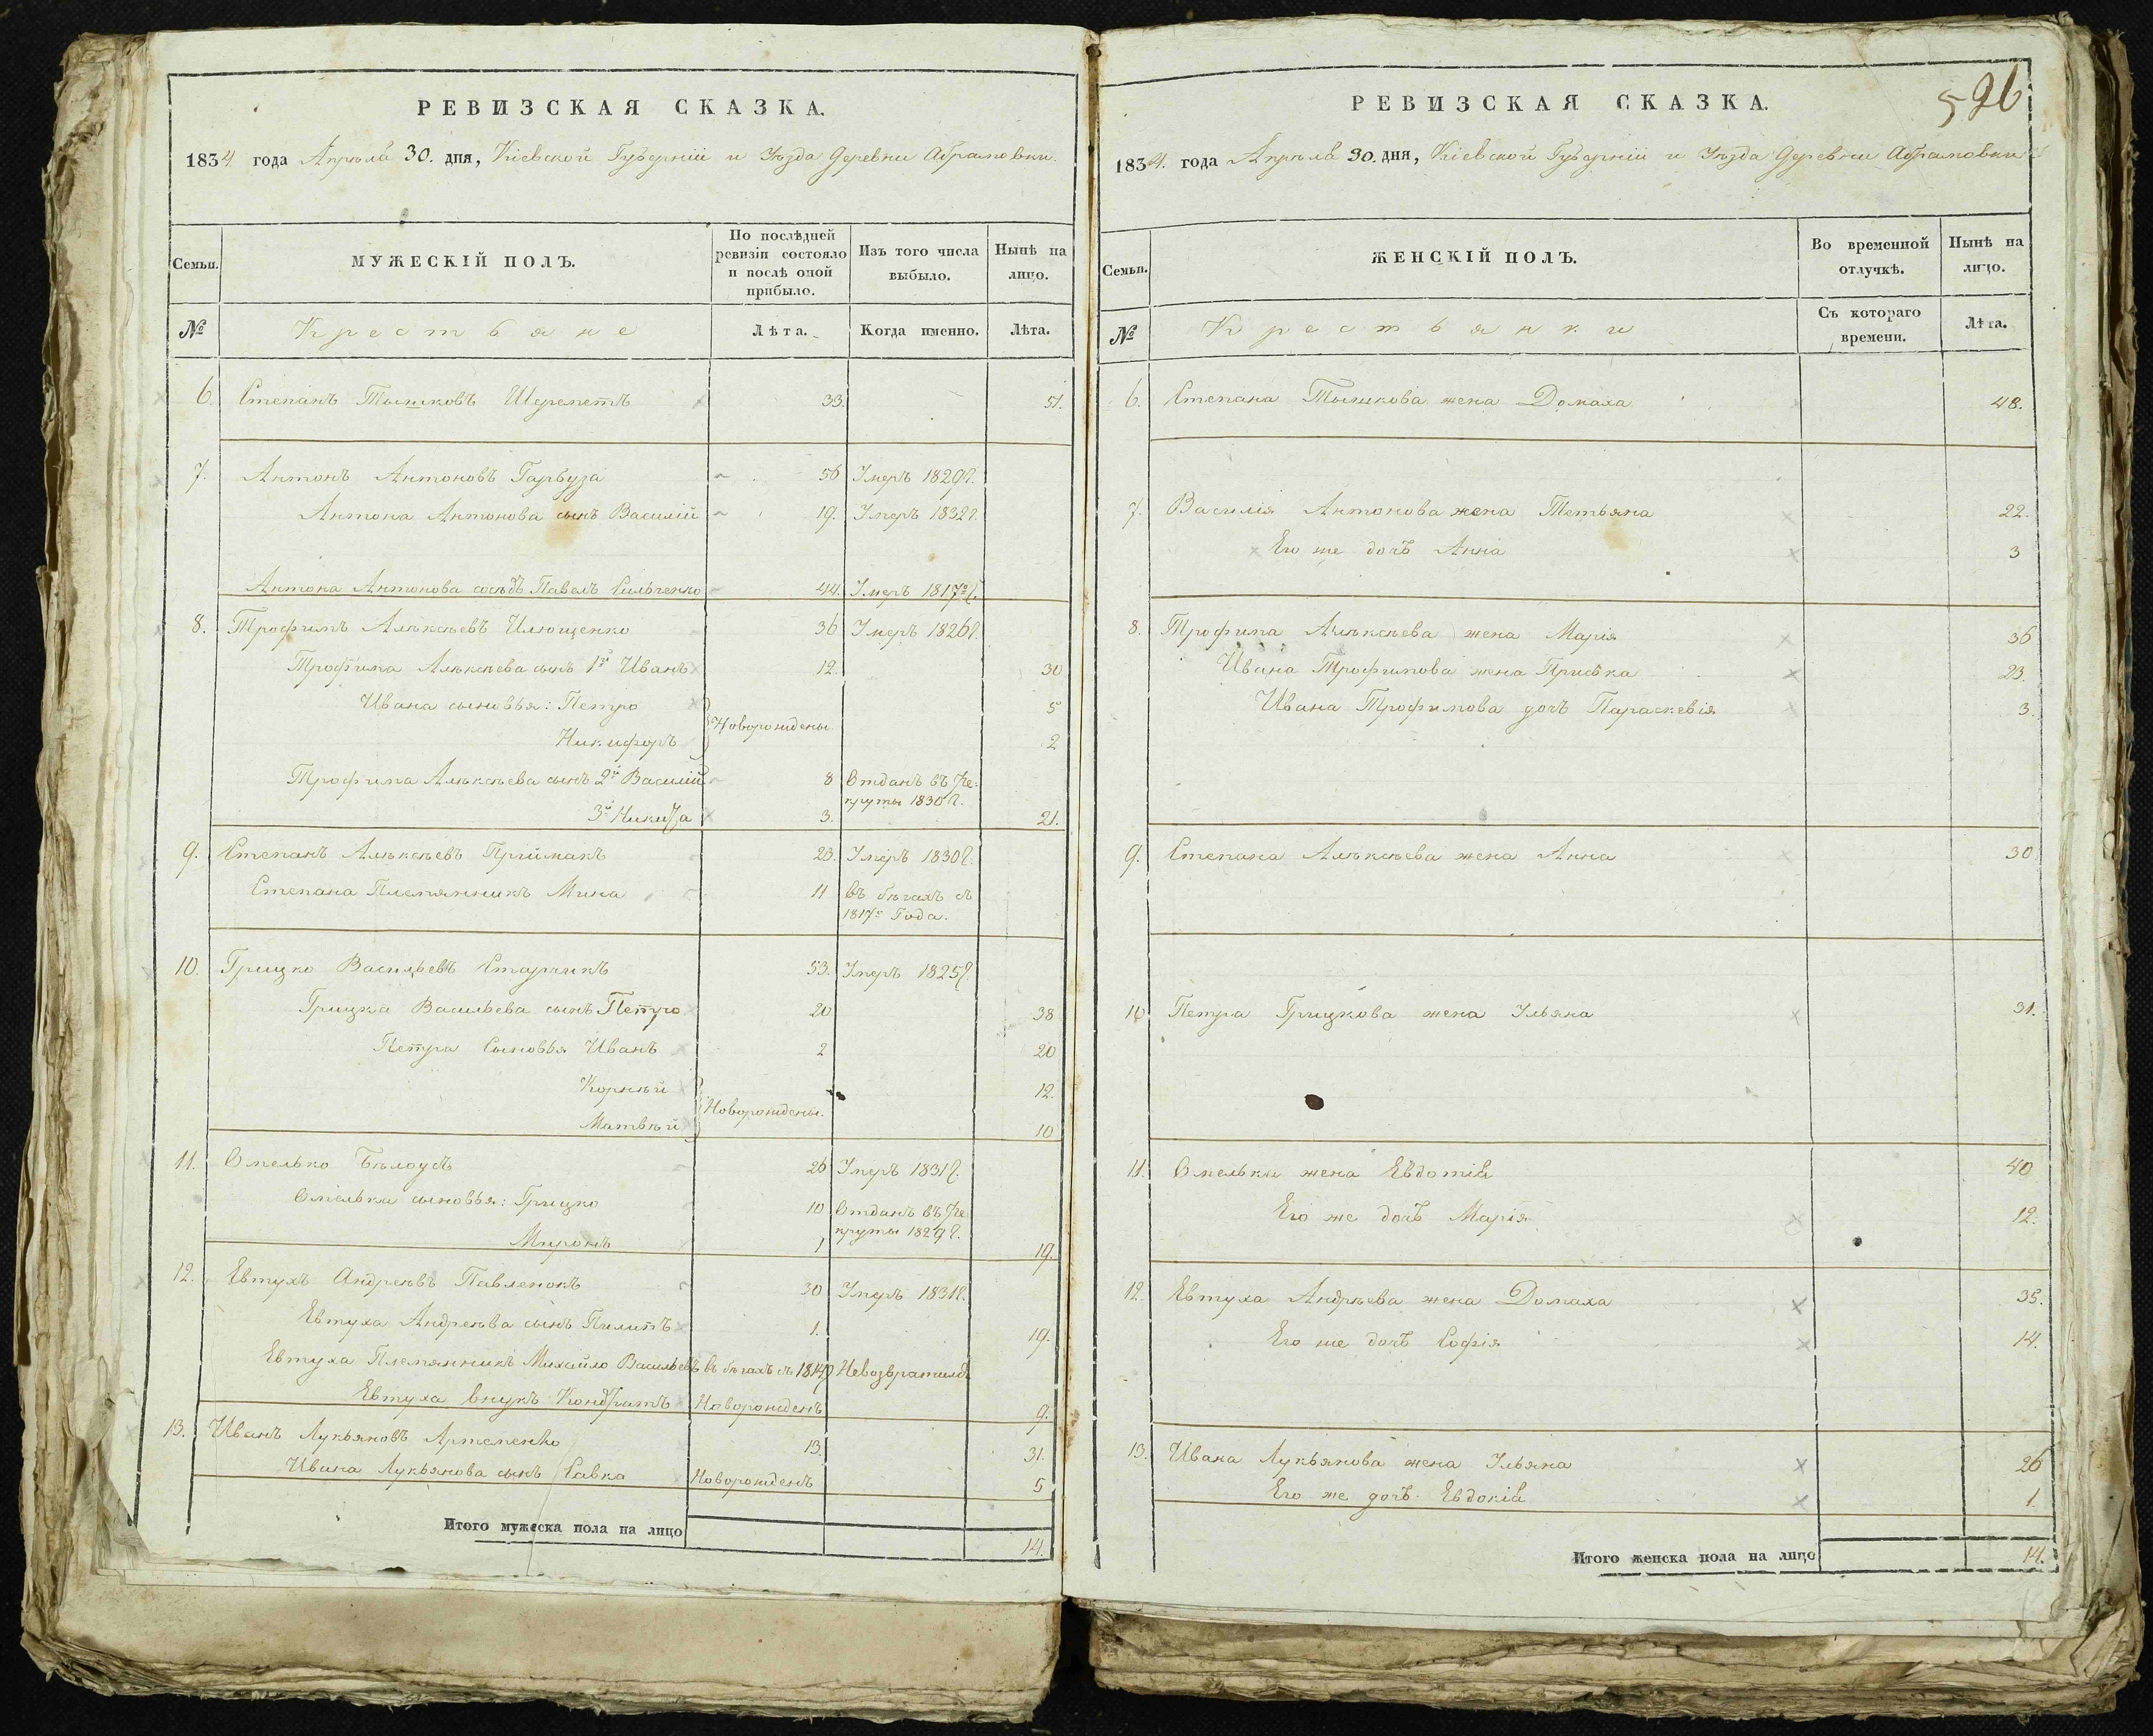 РЕВИЗСКАЯ СКАЗКА.
1834 года Апрѣля 30. дня, Кіевской Губерніи и Уѣзда Деревни Абрамовки.
Семьи.
МУЖЕСКІЙ ПОЛЪ.
По послѣдней ревизіи состояло и послѣ оной прибыло.
Изъ того числа выбыло.
Нынѣ на лицо.
№ Крестьяне Лѣта. Когда именно. Лѣта.
6 Степанъ Тышковъ Шереметъ 33. 51.
7. Антонъ Антоновъ Гарбуза 56 Умеръ 1829г.
Антона Антонова сынъ Василій 19. Умеръ 1832г.
Антона Антонова сосѣдъ Павелъ Сильченко 44. Умеръ 1817го г.
8. Трофимъ Алѣксѣевъ Илющенко 36 Умеръ 1826г.
Трофима Алѣксѣева сынъ 1й Иванъ 12. 30
Ивана сыновья: Петро 5
Новорождены
Никифоръ 2
Трофима Алѣксѣева сынъ 2й Василій 8 Отданъ въ Ре-
круты 1830г.
3й Никита 3. 21.
9. Степанъ Алѣксѣевъ Приймакъ 23. Умеръ 1830г.
Степана Племянникъ Мина 11 въ бѣгахъ съ
1817го Года.
10. Грицко Васильевъ Старчикъ 53. Умеръ 1825г.
Грицка Васильева сынъ Петро 20 38
Петра Сыновья Иванъ 2 20
Корнѣй 12.
Новорождены.
Матвѣй 10
11. Омелько Бѣлоусъ 26 Умеръ 1831г.
Омелька сыновья: Грицко 10 Отданъ въ Ре-
круты 1829г.
Миронъ 1 19.
12. Евтухъ Андреѣвъ Павленокъ 30 Умеръ 1831г.
Евтуха Андреѣва сынъ Пилипъ 1. 19.
Евтуха Племянникъ Михайло Васильевъ въ бѣгахъ съ 1814г Невозвратилсь
Евтуха внукъ Кондратъ Новорожденъ 9.
13. Иванъ Лукьяновъ Артеменко 13. 31.
Ивана Лукьянова сынъ Савка Новорожденъ 5
Итого мужеска пола на лицо 14.
596
РЕВИЗСКАЯ СКАЗКА.
1834. года Апрѣля 30. дня, Кіевской Губерніи и Уѣзда Деревни Абрамовки
Семьи.
ЖЕНСКІЙ ПОЛЪ.
Во временной отлучкѣ.
Нынѣ на лицо.
№ Крестьянки Съ котораго времени. Лѣта.
6. Степана Тышкова жена Домаха 48.
7. Василія Антонова жена Тетьяна 22.
Его же дочь Анна 3
8. Трофима Алѣксѣева жена Марія 36
Ивана Трофимова жена Приська 23.
Ивана Трофимова дочь Параскевія 3.
9. Степана Алѣксѣева жена Анна 30
10 Петра Грицкова жена Ульяна 31.
11. Омелька жена Евдотія 40
Его же дочь Марія 12.
12. Евтуха Андрѣева жена Домаха 35.
Его же дочь Софія 14.
13. Ивана Лукьянова жена Ульяна 26
Его же дочь Евдокія 1
Итого женска пола на лицо 14.